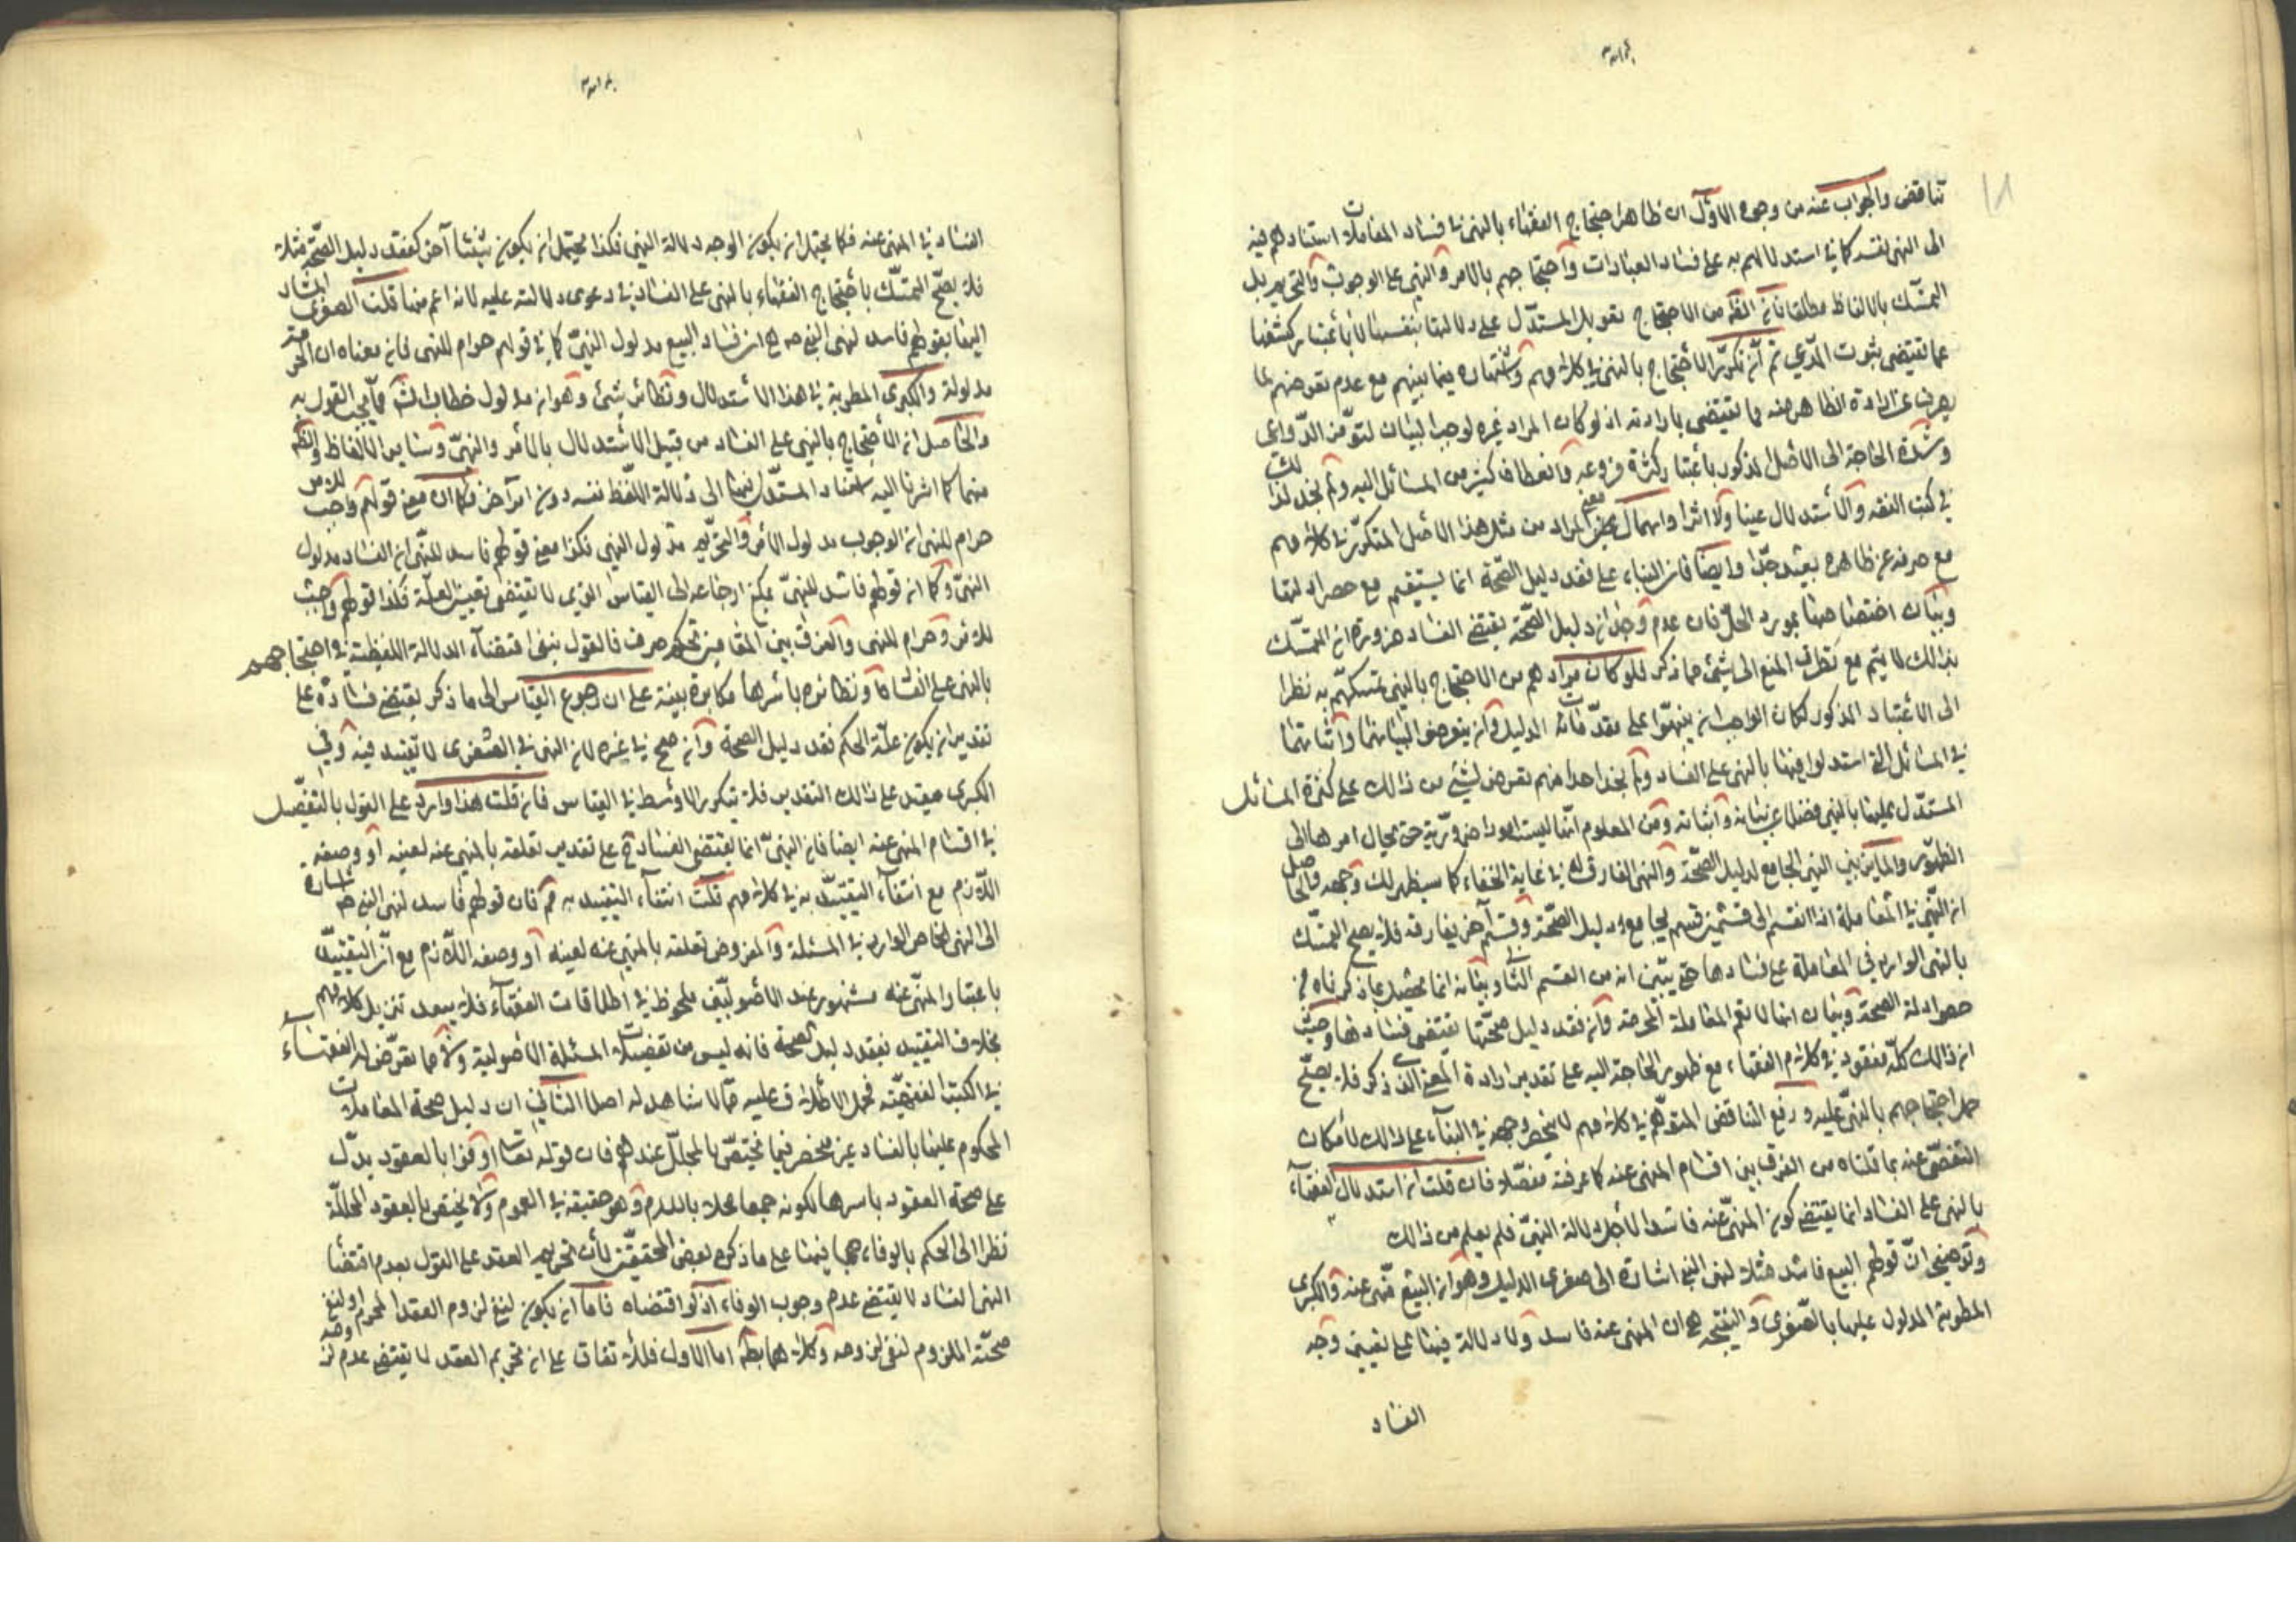 تناقض والجواب عنه من وجوه الاول ان ظاهر احتجاج الفقهاء بالنهى فى فساد المعاملات استنادهم فيه
الى النهى نفسه كما فى استدلالهم به على فساد العبادات واحتجاجهم بالامر والنهى على الوجوب والتحريم بل
التمسك بالالفاظ مطلقا فان الظ من الاحتجاج تعويل المستدل على دلالتها بنفسها لا باعتبار كشفها
عما تقتضى ثبوت المدعى ثم ان تكرر الاحتجاج بالنهى فى كلامهم واشتهاره فيما بينهم مع عدم تعرضهم لما
يصرف عن ارادة الظاهر منه مما تقتضى بارادته اذ لو كان المراد غيره لوجب البيان لتوفر الدواعى
وشدة الحاجة الى الاصل المذكور باعتبار كثرة فروعه وانعطاف كثير من المسائل اليه ولم نجد لذلك
فى كتب الفقه والاستدلال عينا ولا اثرا واهمال المراد من مثل هذا الاصل المتكرر فى كلامهم
مع صرفه عن ظاهره بعيد جدا وايضا فان البناء على فقد دليل الصحة انما يستقيم مع حصر ادلتها
وبيان اختصاصها بمورد الحل فان عدم وجدان دليل الصحة يقتضى الفساد ضرورة ان التمسك
بذلك لا يتم مع تطرق المنع الى شئ مما ذكر فلو كان مرادهم من الاحتجاج بالنهى تمسكهم به نظرا
الى الاعتبار المذكور لكان الواجب ان ينبهوا على مقدمات الدليل وان يتعرضوا لبيانها واثباتها
فى المسائل التى استدلوا فيها بالنهى على الفساد ولم نجد احدا منهم تعرض لشئ من ذلك على كثرة المسائل
المستدل عليها بالنهى فضلا عن بيانه واثباته ومن المعلوم انها ليست امورا ضرورية حتى يحال امرها الى
الظهور والماين بين النهى الجامع لدليل الصحة والنهى المفارق له فى غاية الخفاء كما سيظهر لك وجهه والحاصل
ان النهى فى المعاملة اذا انقسم الى قسمين قسم يجامع دليل الصحة وقسم آخر يفارقه فلا يصح التمسك
بالنهى الوارد فى المعاملة على فسادها حتى يتبين انه من القسم الثانى وبيانه انما يحصل بما ذكرناه من
حصر ادلة الصحة وبيان انها لا تعم المعاملة المحرمة وان فقد دليل صحتها تقتضى فسادها وحيث
ان ذلك كله مفقود فى كلام الفقهاء مع ظهور الحاجة اليه على تقدير ارادة المعنى الذى ذكر فلا يصح
حمل احتجاجهم بالنهى عليه ورفع التناقض المتوهم فى كلامهم لا ينحصر وجهه فى البناء على ذلك لامكان
التفصى عنه بما قلناه من الفرق بين اقسام المنهى عنه كما عرفته مفصلا فان قلت ان استدلال الفقهاء
بالنهى على الفساد انما يقتضى كون المنهى عنه فاسدا لاجل دلالة النهى فلم يعلم من ذلك
وتوضيحه ان قولهم البيع فاسد مثلا لنهى النبى اشارة الى صغرى الدليل وهو ان البيع منهى عنه والكبرى
المطوية المدلول عليها بالصغرى والنتيجه هى ان المنهى عنه فاسد ولا دلالة فيها على تعيين وجه
الفساد
الفساد فى المنهى عنه فكما يحتمل ان يكون الوجه دلالة النهى فكذا يحتمل ان يكون شيئا آخر كفقد دليل الصحة مثلا
فلا يصح التمسك باحتجاج الفقهاء بالنهى على الفساد فى دعوى دلالته عليه لانه اعم منها قلت الصغرى المشار
اليها بقولهم فاسد لنهى النبى ص هى ان فساد البيع مدلول النهى كما فى قولهم حرام للنهى فان معناه ان الحرمة
مدلوله والكبرى المطوية فى هذا الاستدلال ونظائره شئ وهو ان مدلول خطاب الش مما يجب القول به
والحاصل ان الاحتجاج بالنهى على الفساد من قبيل الاستدلال بالامر والنهى وسائر الالفاظ والظ
منها كما اشرنا اليه استناد المستدل فيها الى دلالة اللفظ نفسه دون امر آخر فكما ان معنى قولهم واجب للامر
حرام للنهى ان الوجوب مدلول الامر والتحريم مدلول النهى فكذا معنى قولهم فاسد للنهى ان الفساد مدلول
النهى وكما ان قولهم فاسد للنهى يمكن ارجاعه الى القياس الذى لا يقتضى تعيين العلة فكذا قولهم واجب
للامر وحرام للنهى والفرق بين المقامين تحكم صرف فالقول بنفى اقتضاء الدلالة اللفظية فى احتجاجهم
بالنهى على الفساد ونظائره باسرها مكابرة بينة على ان رجوع القياس الى ما ذكر يقتضى فساده على
تقدير ان يكون علة الحكم فقد دليل الصحة وانه صحح فى غيره لان النهى فى الصغرى لا تقييد فيه وفى
الكبرى مقيد على ذلك التقدير فلا يتكرر الاوسط فى القياس فان قلت هذا وارد على القول بالتفصيل
فى اقسام المنهى عنه ايضا فان النهى انما يقتضى الفساد ح على تقدير تعلقه بالمنهى عنه لعينه او وصفه
اللازم مع انتفاء التقييد به فى كلامهم قلت انتفاء التقييد به مم فان قولهم فاسد لنهى النبى ص اشارة
الى النهى الخاص الوارد فى المسئلة والمفروض تعلقه بالمنهى عنه لعينه او وصفه اللازم مع ان التقييد
باعتبار المنهى عنه مشهور عند الاصوليين ملحوظ فى اطلاقات الفقهاء فلا يبعد تنزيل كلامهم
بخلاف التقييد بفقد دليل الصحة فانه ليس من تفصيلات المسئلة الاصولية ولا مما تعرض له الفقهاء
فى الكتب الفقهية فحمل الاطلاق عليه مما لا شاهد له اصلا الثانى ان دليل صحة المعاملات
المحكوم عليها بالفساد غير منحصر فيما يختص بالمحلل عندهم فان قوله تعا اوفوا بالعقود يدل
على صحة العقود باسرها لكونه جمعا محلا باللام وهو حقيقة فى العموم ولا يختص بالعقود المحللة
نظرا الى الحكم بالوفاء فيها على ما ذكره بعض المحققين لان تحريم العقد على القول بعدم اقتضاء
النهى الفساد لا يقتضى عدم وجوب الوفاء اذ لو اقتضاه فاما ان يكون لنفى لزوم العقد المحرم او لنفى
صحته الملزوم لنفى لزومه وكلاهما بط اما الاول فللاتفاق على ان تحريم العقد لا يقتضى عدم لزومه